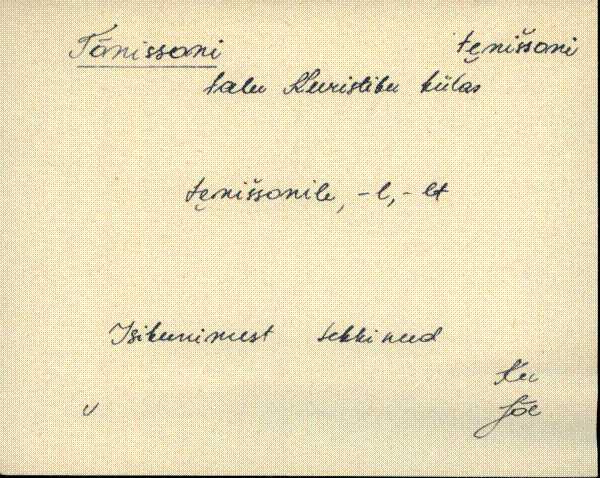 Tõnissoni tęniššoni
talu Kuristiku külas
tęniššonile, -l, -lt
Isikunimest tekkinud
Ku
v Jõe